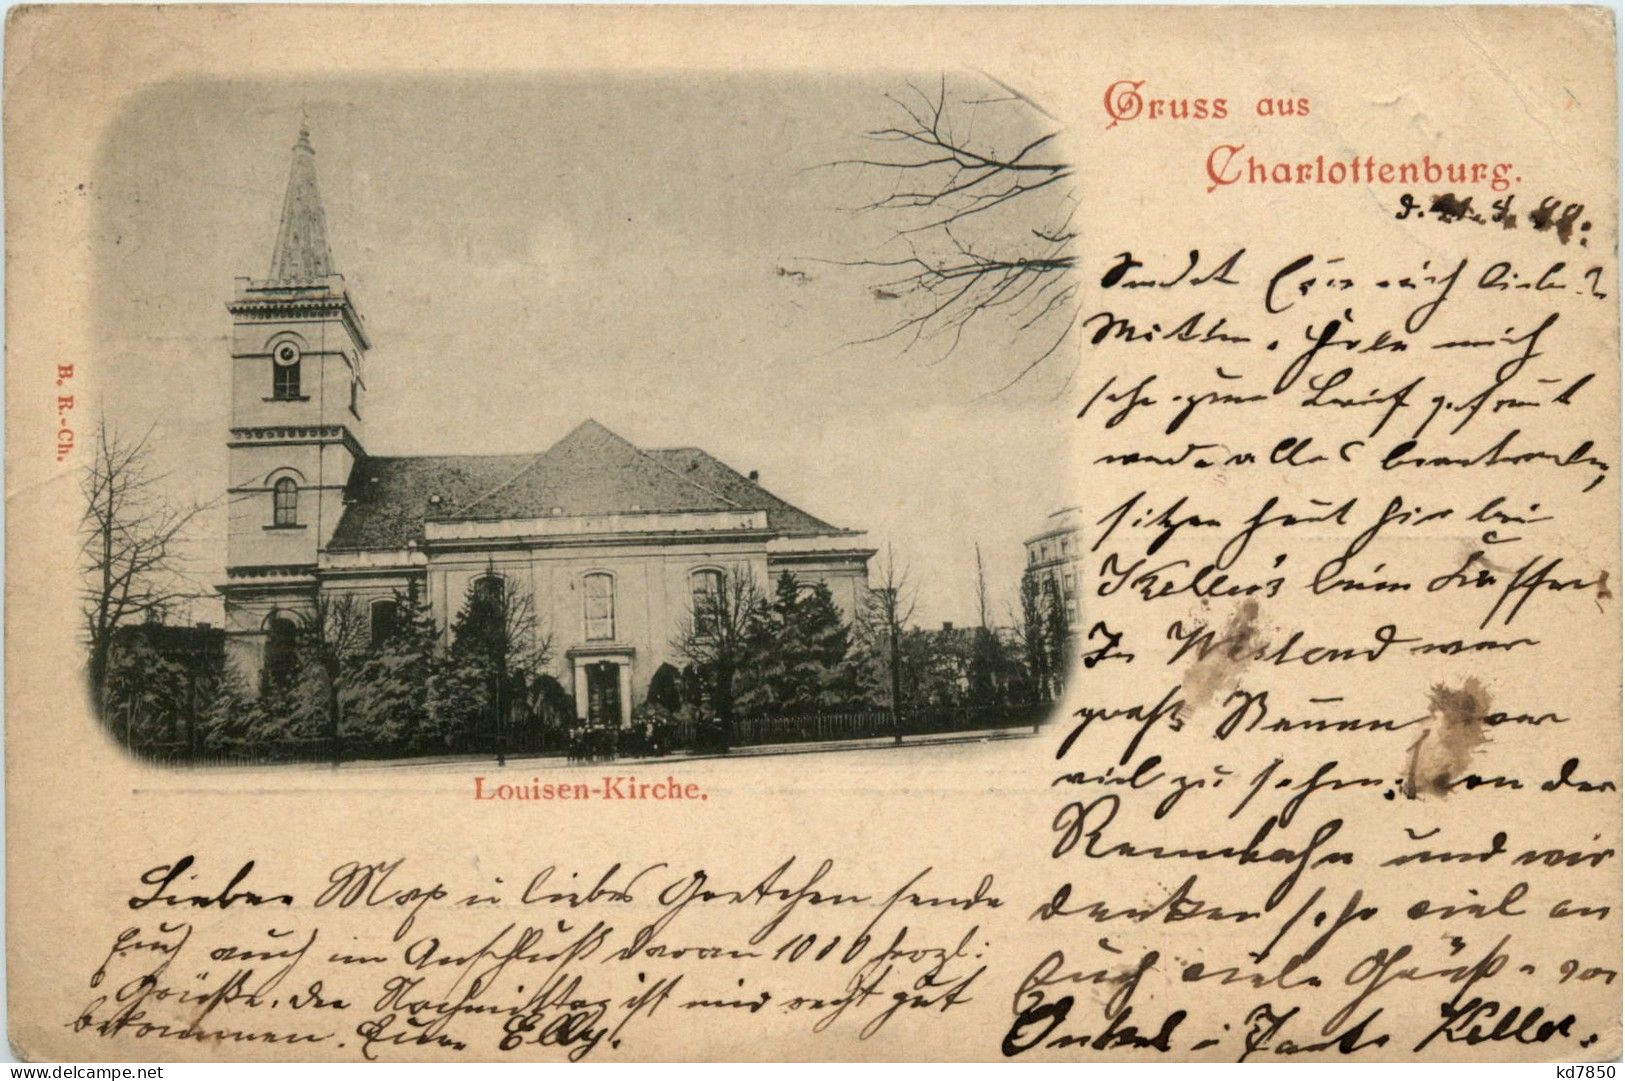 Gruss aus
Charlottenburg.
B. R.-Ch.
Louisen-Kirche.
mich liebe
mich
sehr zum Brief gefreut
werde alles beantworten,
sitzen heut hier bei
Keller's beim Kaffee
In Westend war
groß Rennen, war
viel zu sehen, von der
Rennbahn und wir
denken sehr viel an
Euch viele Grüße von
Onkel u Tante Keller.
Lieber Max u liebes Gretchen sende
Euch auch im Anschluß daran 1000 herzl.
Grüße. Der Nachmittag ist mir recht gut
bekommen. Eure Elly.
kd7850